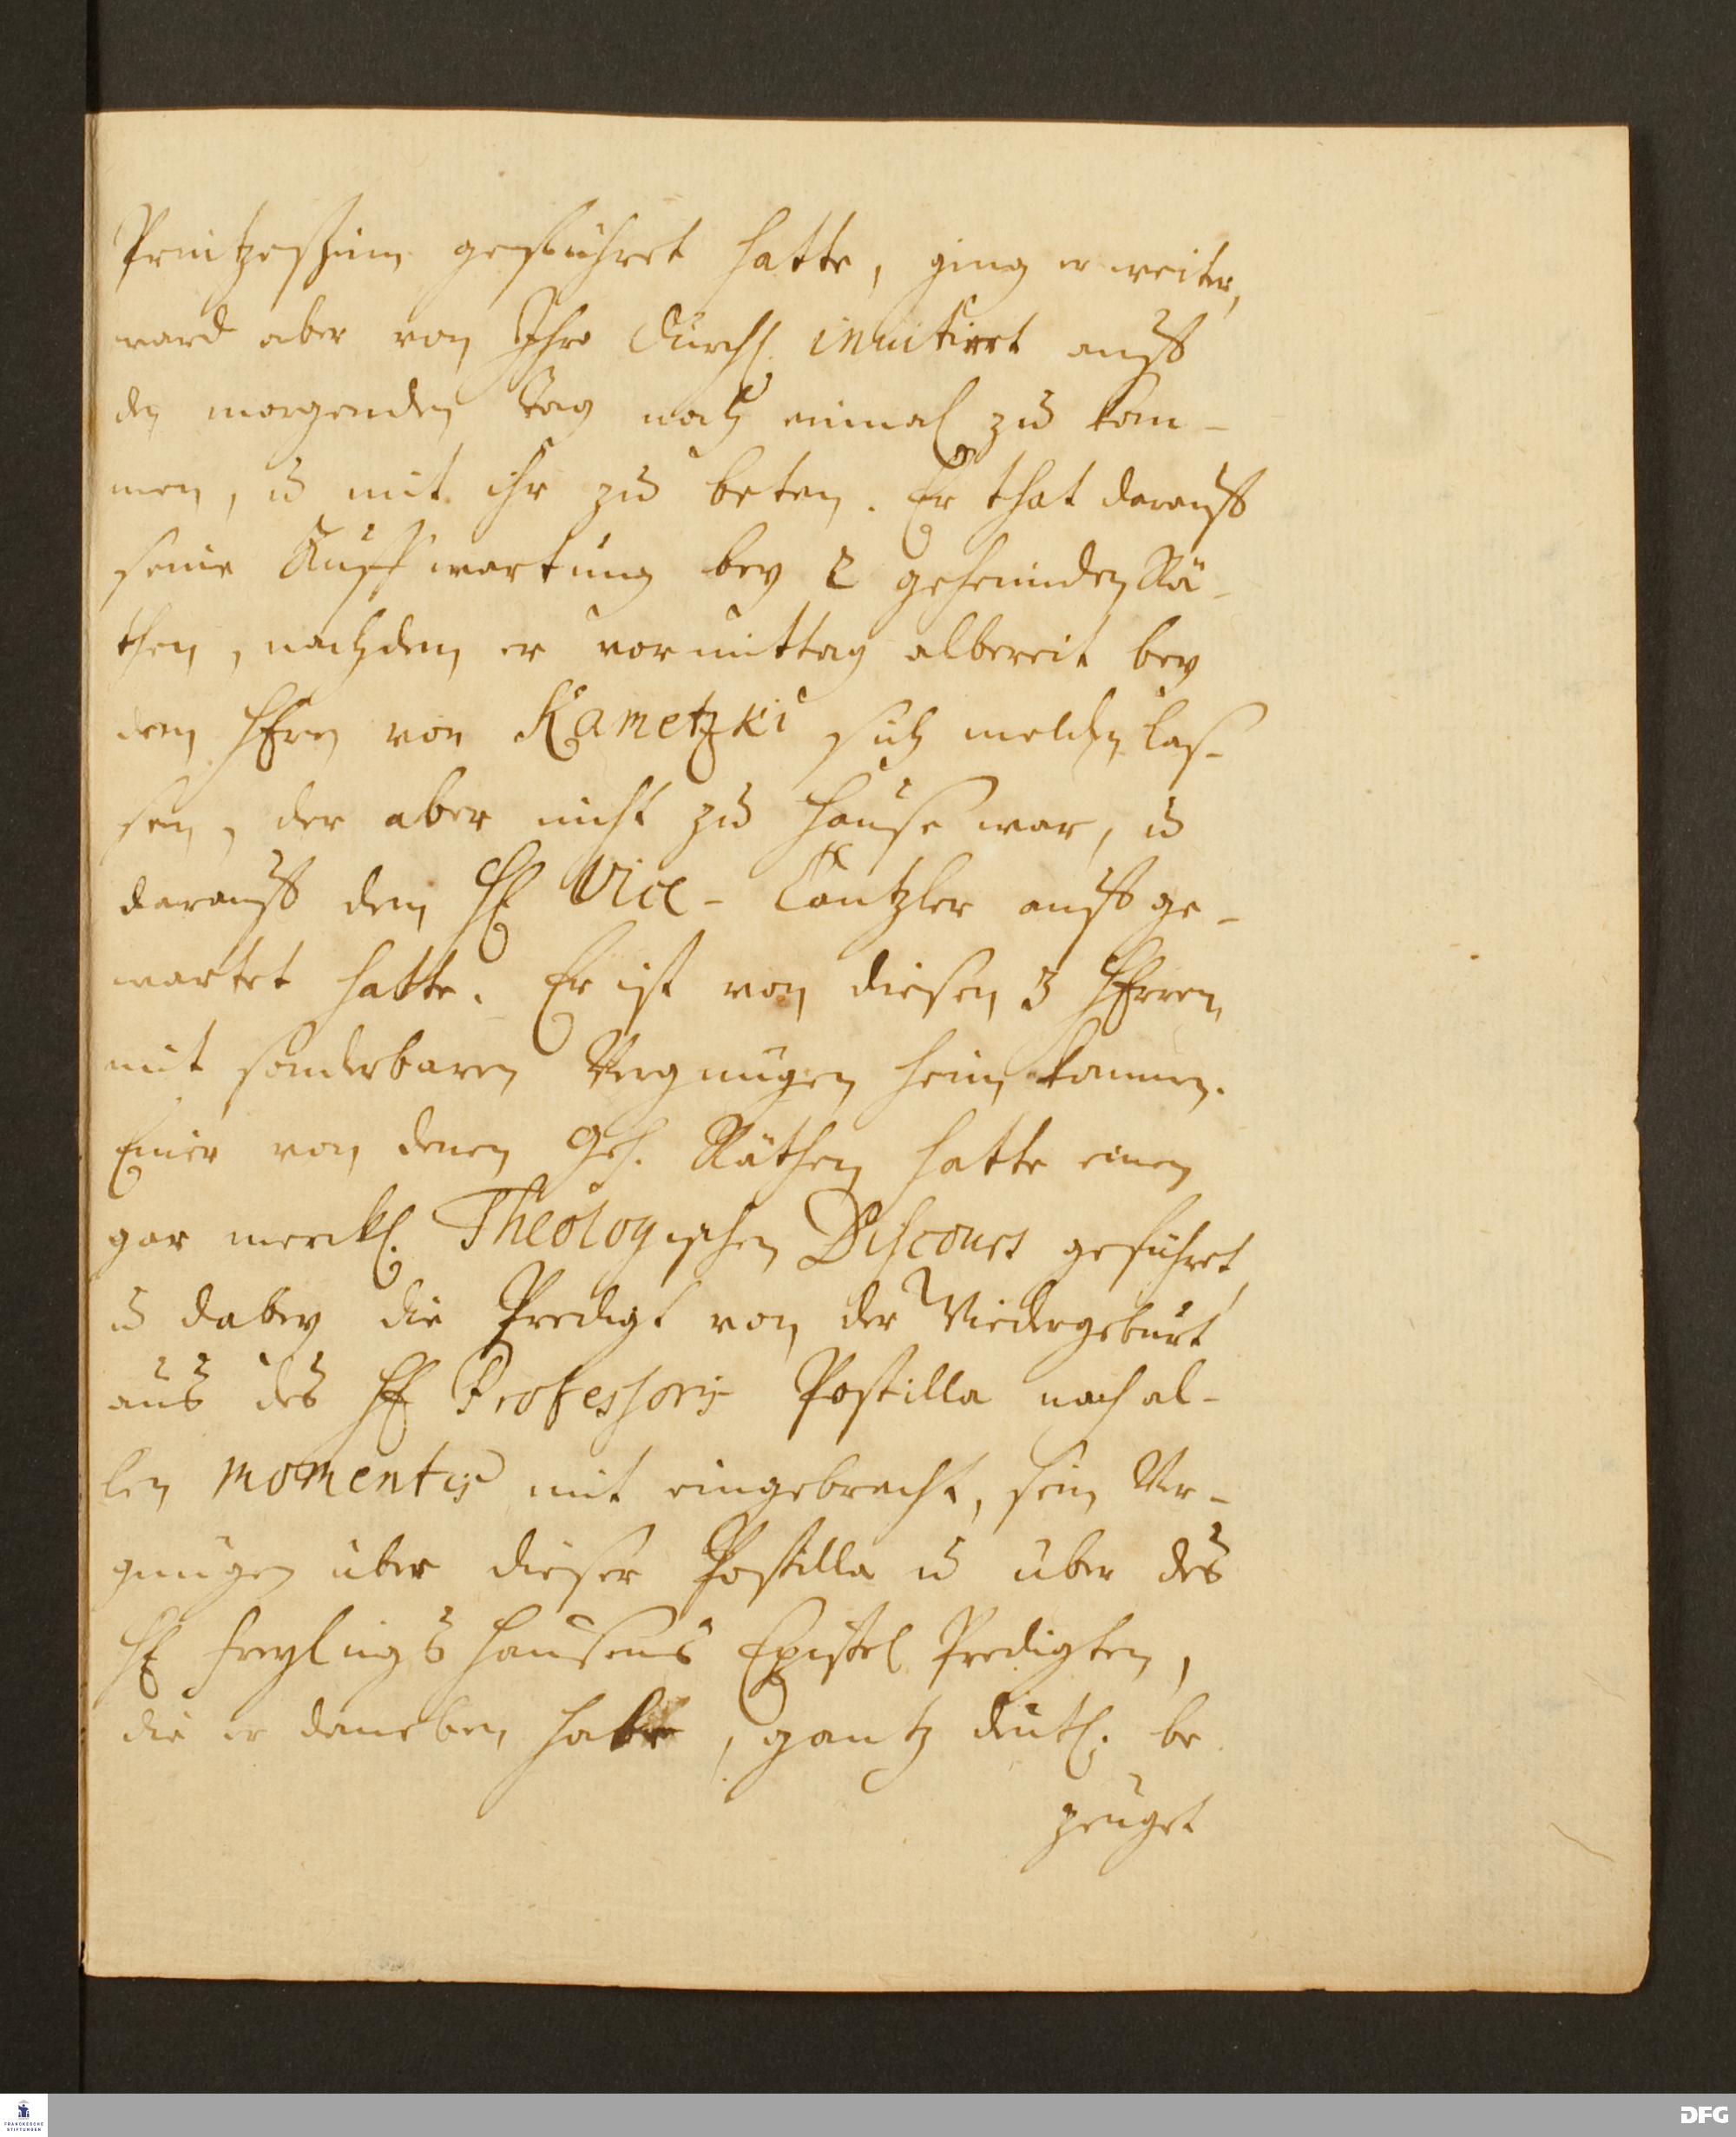 Printzeßin geführet hatte, ging er weiter,
ward aber von Ihro Durchl. invitiret auff
den morgenden Tag noch einmal zu kom-
men, u mit ihr zu beten. Er that darauff
seine Auffwartung bey 2 geheimden Rä-
then, nachdem er vormittag albereit bey
dem Hern von Kametzki sich melden las-
sen, der aber nicht zu Hause war, u
darauff dem H Vice-Cantzler auffge-
wartet hatte. Er ist von diesen 3 Herren
mit sonderbaren Vergnügen heim kommen.
Einer von denen Geh. Räthen hatte einen
gar merckl. Theologischen Discours geführet,
u dabey die Predigt von der Wiedergeburt
aus des H Professoris Postilla nach al-
len momentis mit eingebracht, sein Ver-
gnügen über dieser Postilla u über des
H Freylingshausens Epistel Predigten,
die er daneben habe, gantz deutl. be
zeuget
FRANCKESCHE
STIFTUNGEN
DFG